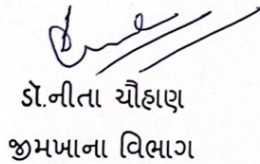 ડૉ.નીતા ચૌહાણ
જીમખાના વિભાગ